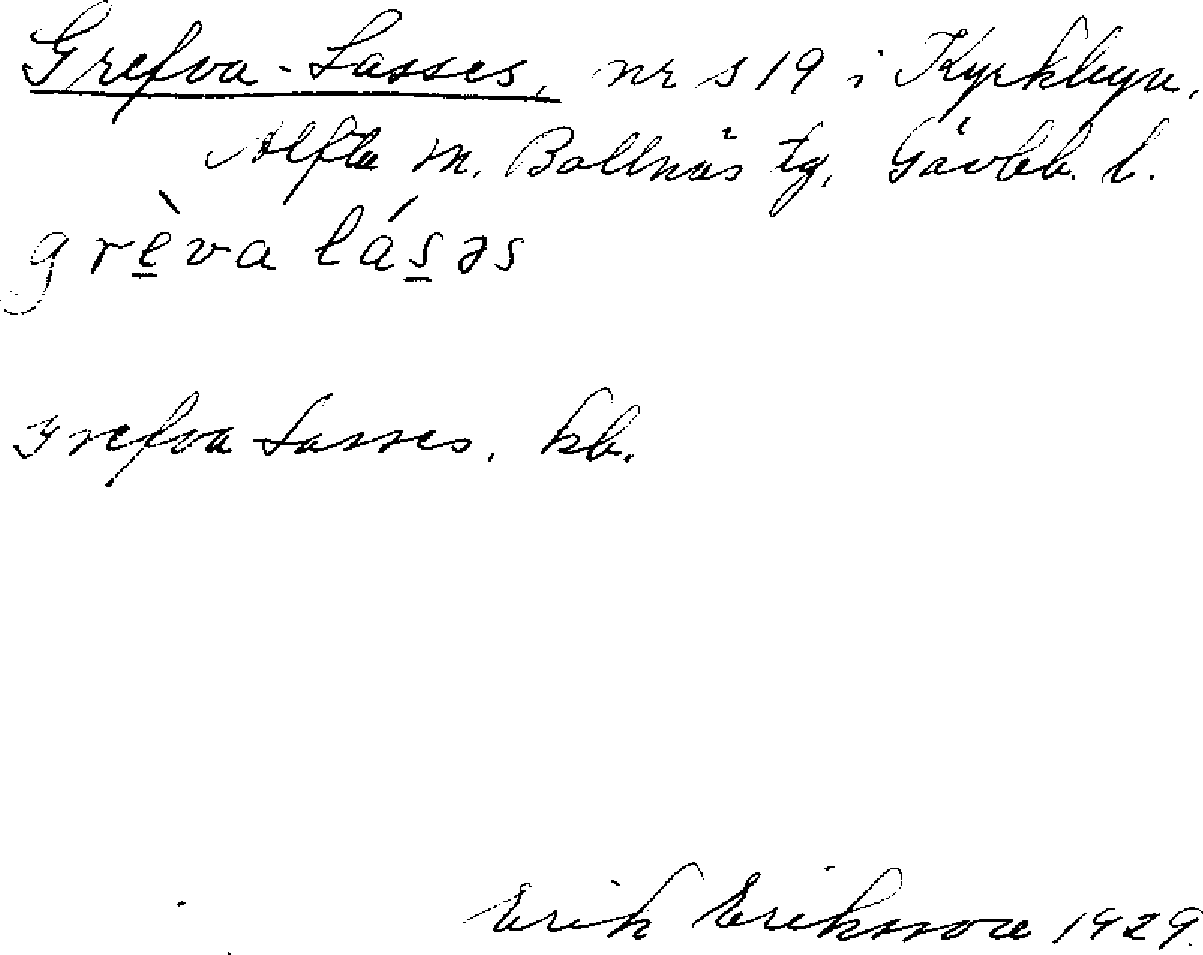 Grefva-Lasses, nr s 19 i Kyrkbyn,
Alfta m. Bollnäs tg, Gävleb. l.
grèva lásəs
Grefva Lasses, kb.
Erik Eriksson 1929.